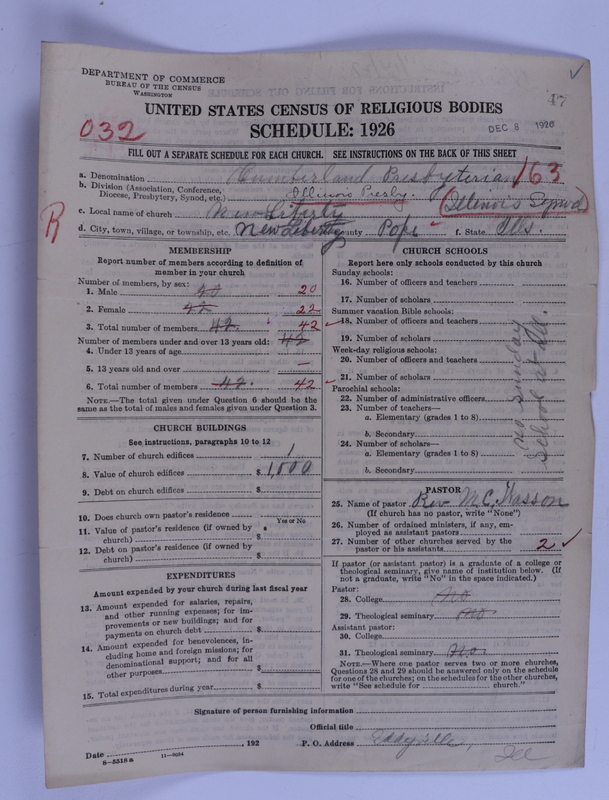 DEPARTMENT OF COMMERCE
BUREAU OF THE CENSUS
WASHINGTON
47
UNITED STATES CENSUS OF RELIGIOUS BODIES
032
SCHEDULE: 1926
DEC 8 1926
FILL OUT A SEPARATE SCHEDULE FOR EACH CHURCH. SEE INSTRUCTIONS ON THE BACK OF THIS SHEET
a. Denomination Cumberland Presbyterian 163
b. Division (Association, Conference, Diocese, Presbytery, Synod, etc.) Illinois Presby. (Illinois Synod)
R
c. Local name of church New Liberty
d. City, town, village, or township, etc. New Liberty County Pope f. State Ills.
MEMBERSHIP
Report number of members according to definition of
member in your church
Number of members, by sex:
1. Male 20
2. Female 22
3. Total number of members 42. 42
Number of members under and over 13 years old: 42
4. Under 13 years of age
5. 13 years old and over —
6. Total number of members 42. 42
NOTE.—The total given under Question 6 should be the
same as the total of males and females given under Question 3.
CHURCH BUILDINGS
See instructions, paragraphs 10 to 12
7. Number of church edifices 1
8. Value of church edifices $ 1,000
9. Debt on church edifices $
10. Does church own pastor's residence
Yes or No
11. Value of pastor's residence (if owned by
church) $
12. Debt on pastor's residence (if owned by
church) $
EXPENDITURES
Amount expended by your church during last fiscal year
13. Amount expended for salaries, repairs,
and other running expenses; for im-
provements or new buildings; and for
payments on church debt $
14. Amount expended for benevolences, in-
cluding home and foreign missions; for
denominational support; and for all
other purposes $
15. Total expenditures during year $
CHURCH SCHOOLS
Report here only schools conducted by this church
Sunday schools:
16. Number of officers and teachers
17. Number of scholars
Summer vacation Bible schools:
18. Number of officers and teachers
19. Number of scholars
Week-day religious schools:
20. Number of officers and teachers
21. Number of scholars
Parochial schools:
22. Number of administrative officers
23. Number of teachers—
a. Elementary (grades 1 to 8)
b. Secondary
24. Number of scholars—
a. Elementary (grades 1 to 8)
b. Secondary
no Sunday
School at all.
PASTOR
25. Name of pastor Rev M.C. Wasson
(If church has no pastor, write "None")
26. Number of ordained ministers, if any, em-
ployed as assistant pastors
27. Number of other churches served by the
pastor or his assistants 2
If pastor (or assistant pastor) is a graduate of a college or
theological seminary, give name of institution below. (If
not a graduate, write "No" in the space indicated.)
Pastor:
28. College No
29. Theological seminary No
Assistant pastor:
30. College
31. Theological seminary No.
NOTE.—Where one pastor serves two or more churches,
Questions 28 and 29 should be answered only on the schedule
for one of the churches; on the schedules for the other churches,
write "See schedule for church."
Signature of person furnishing information
Official title
Date , 192 P. O. Address Eddyville, Ill
8—5518 a 11—9084